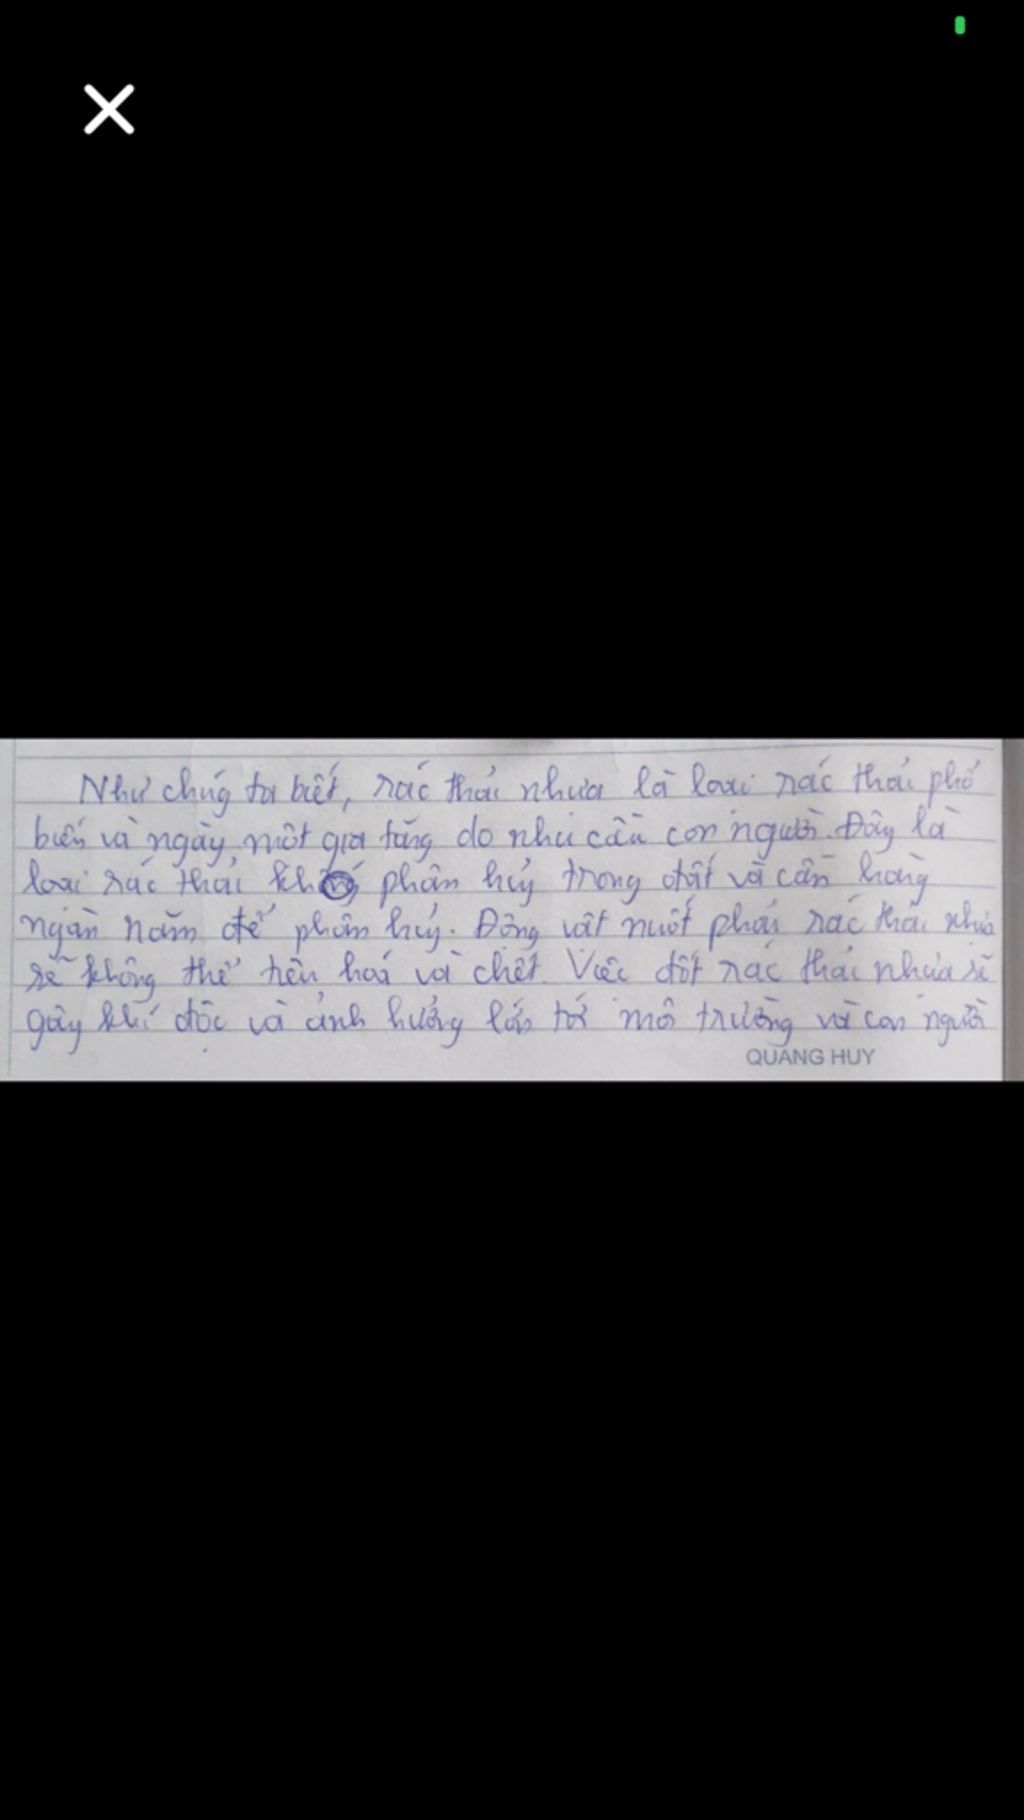 Như chúng ta biết, rác thải nhựa là loại rác thải phổ
biến và ngày một gia tăng do nhu cầu con người. Đây là
loại rác thải khó phân hủy trong đất và cần hàng
ngàn năm để phân hủy. Động vật nuốt phải rác thải nhựa
sẽ không thể tiêu hoá và chết. Việc đốt rác thải nhựa sẽ
gây khí độc và ảnh hưởng lớn tới môi trường và con người
QUANG HUY